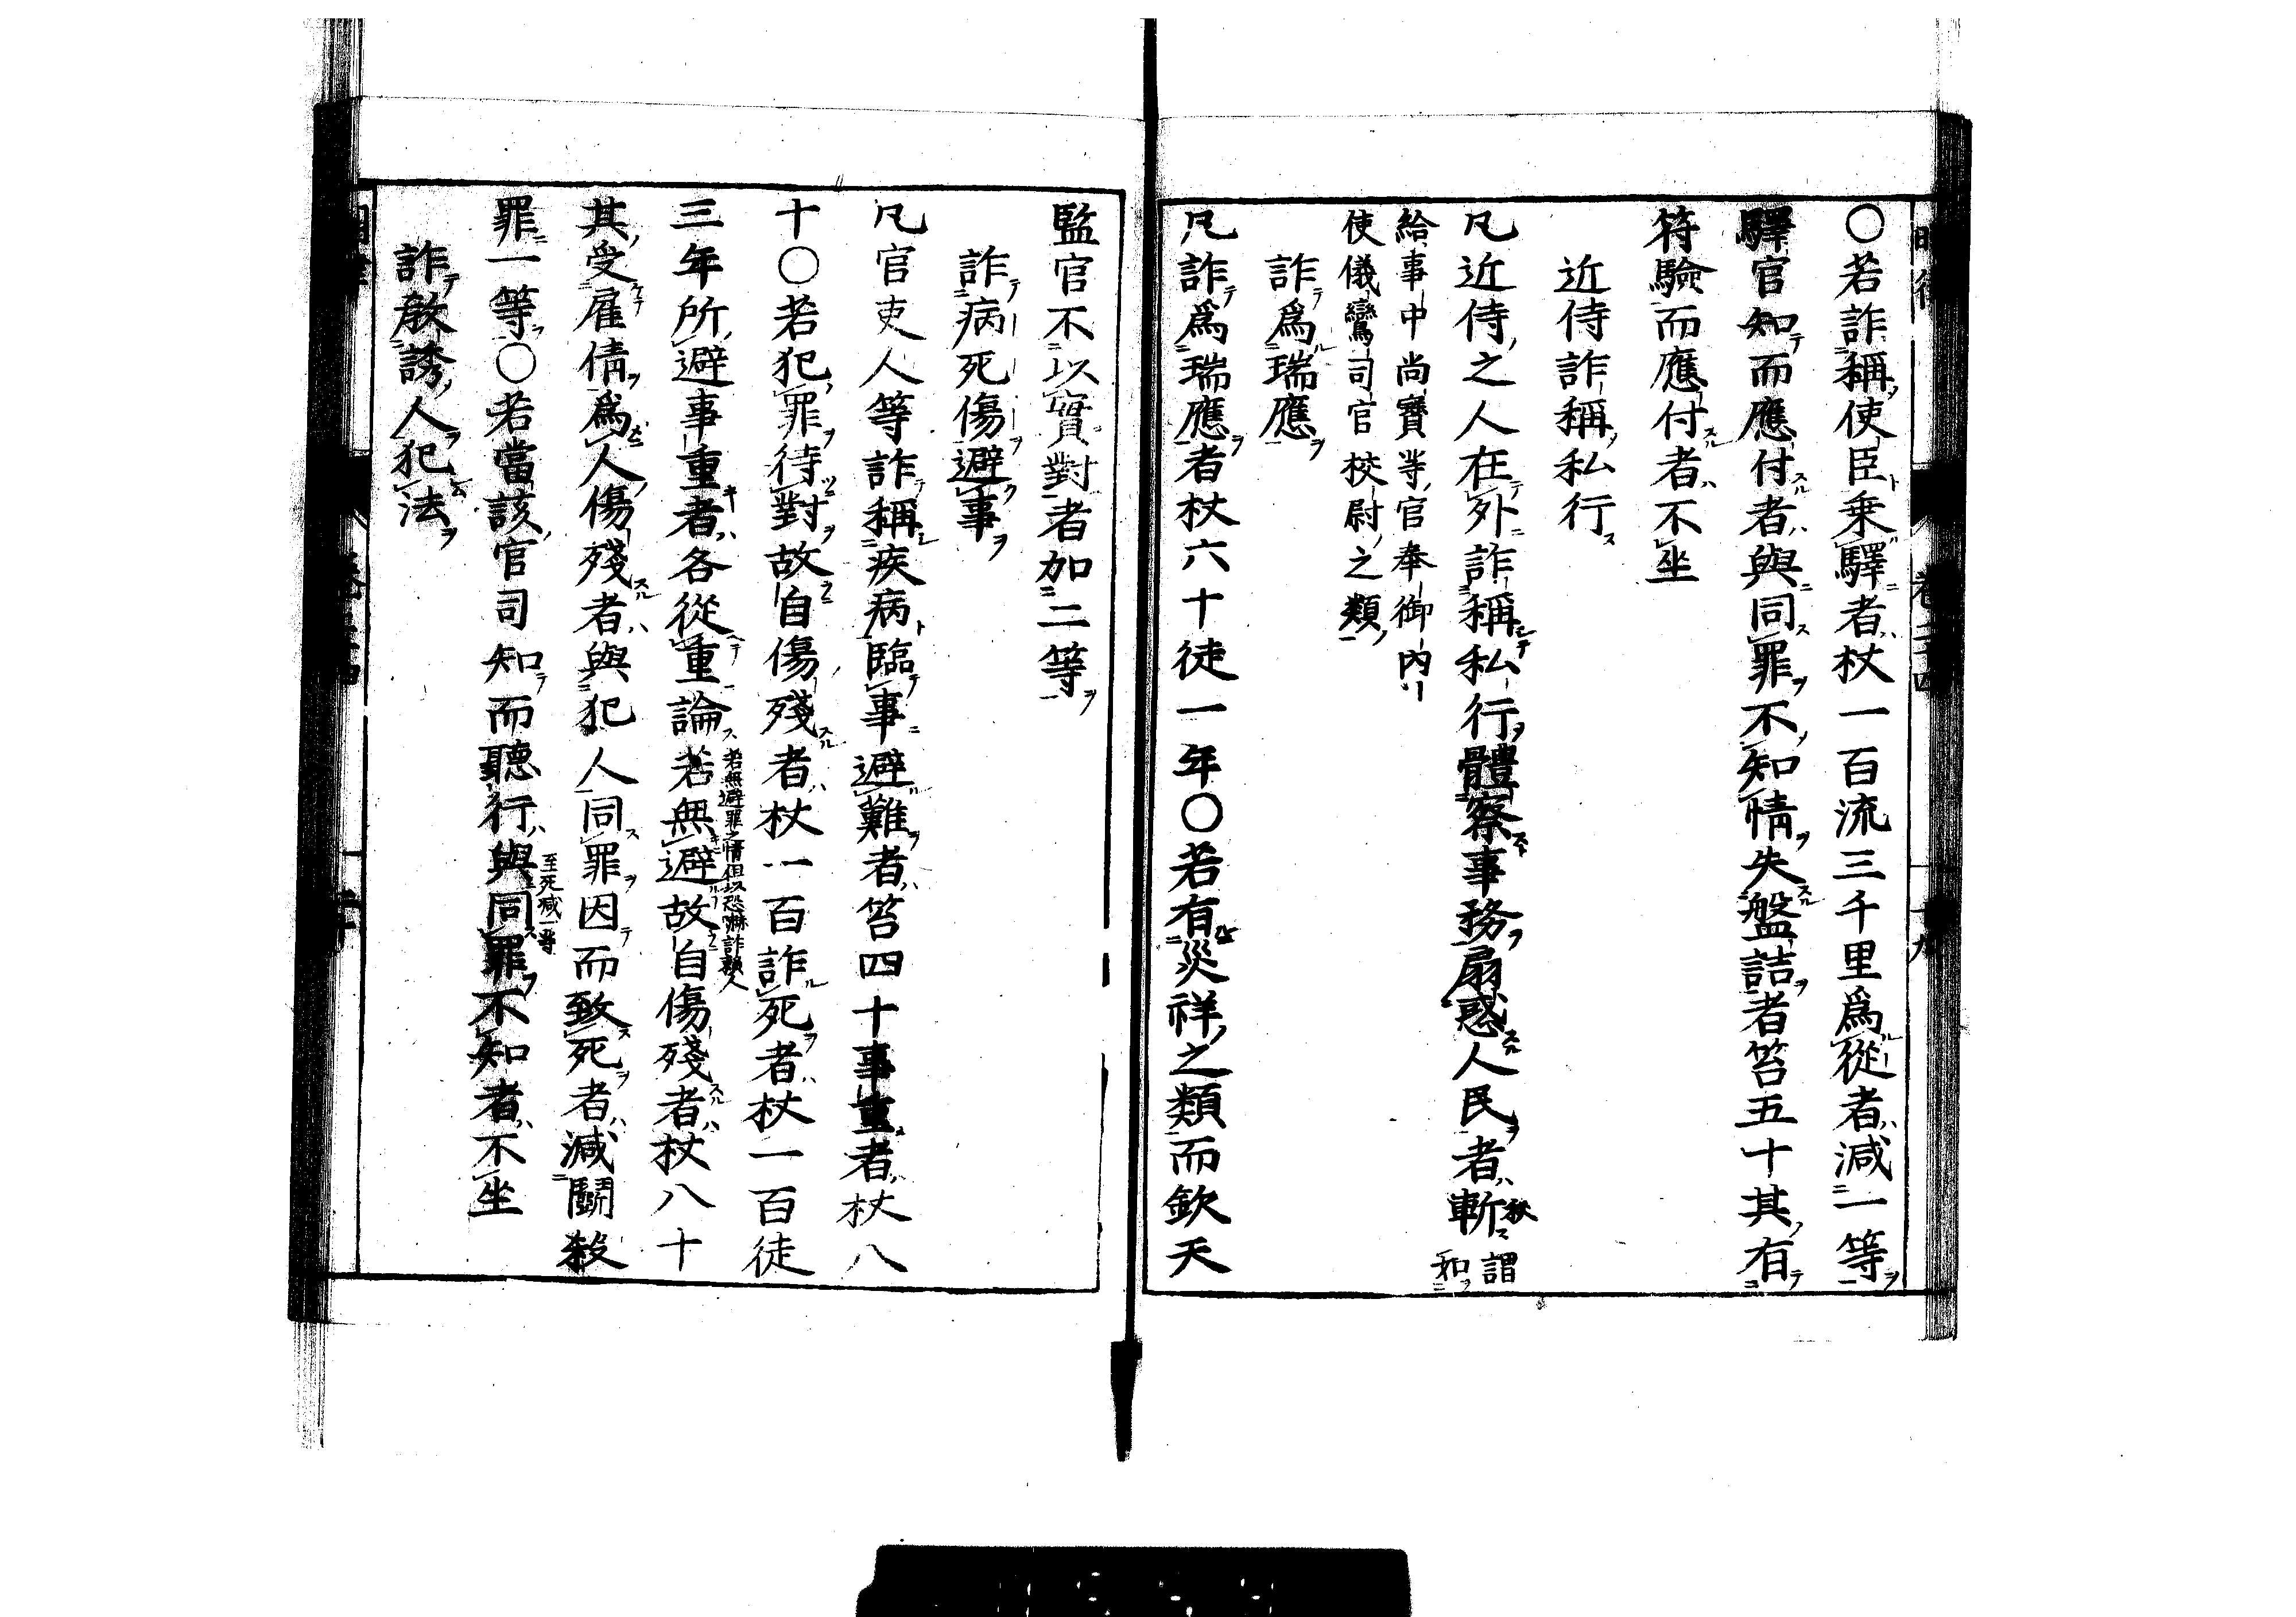 〇若詐稱使臣乗驛者杖一百流三千里爲從者減一等
驛官知而應付者與同罪不知情失盤詰者笞五十其有
符驗而應付者不坐
近侍詐稱私行
凡近侍之人在外詐稱私行體察事務扇惑人民者斬秋謂
和
給事中尚寶等官奉御內
使儀鸞司官校尉之類
詐爲瑞應
凡詐爲瑞應者杖六十徒一年〇若有災祥之類而欽天
監官不以實對者加二等
詐病死傷避事
凡官吏人等詐稱疾病臨事避難者笞四十事重者杖八
十〇若犯罪待對故自傷殘者杖一百詐死者杖一百徒
三年所避事重者各從重論若無避故自傷殘者杖八十
若無避罪之情但以恐嚇詐賴人
其受雇倩爲人傷殘者與犯人同罪因而致死者減鬭殺
罪一等〇若當該官司知而聽行與同罪不知者不坐
至死減一等
詐教誘人犯法